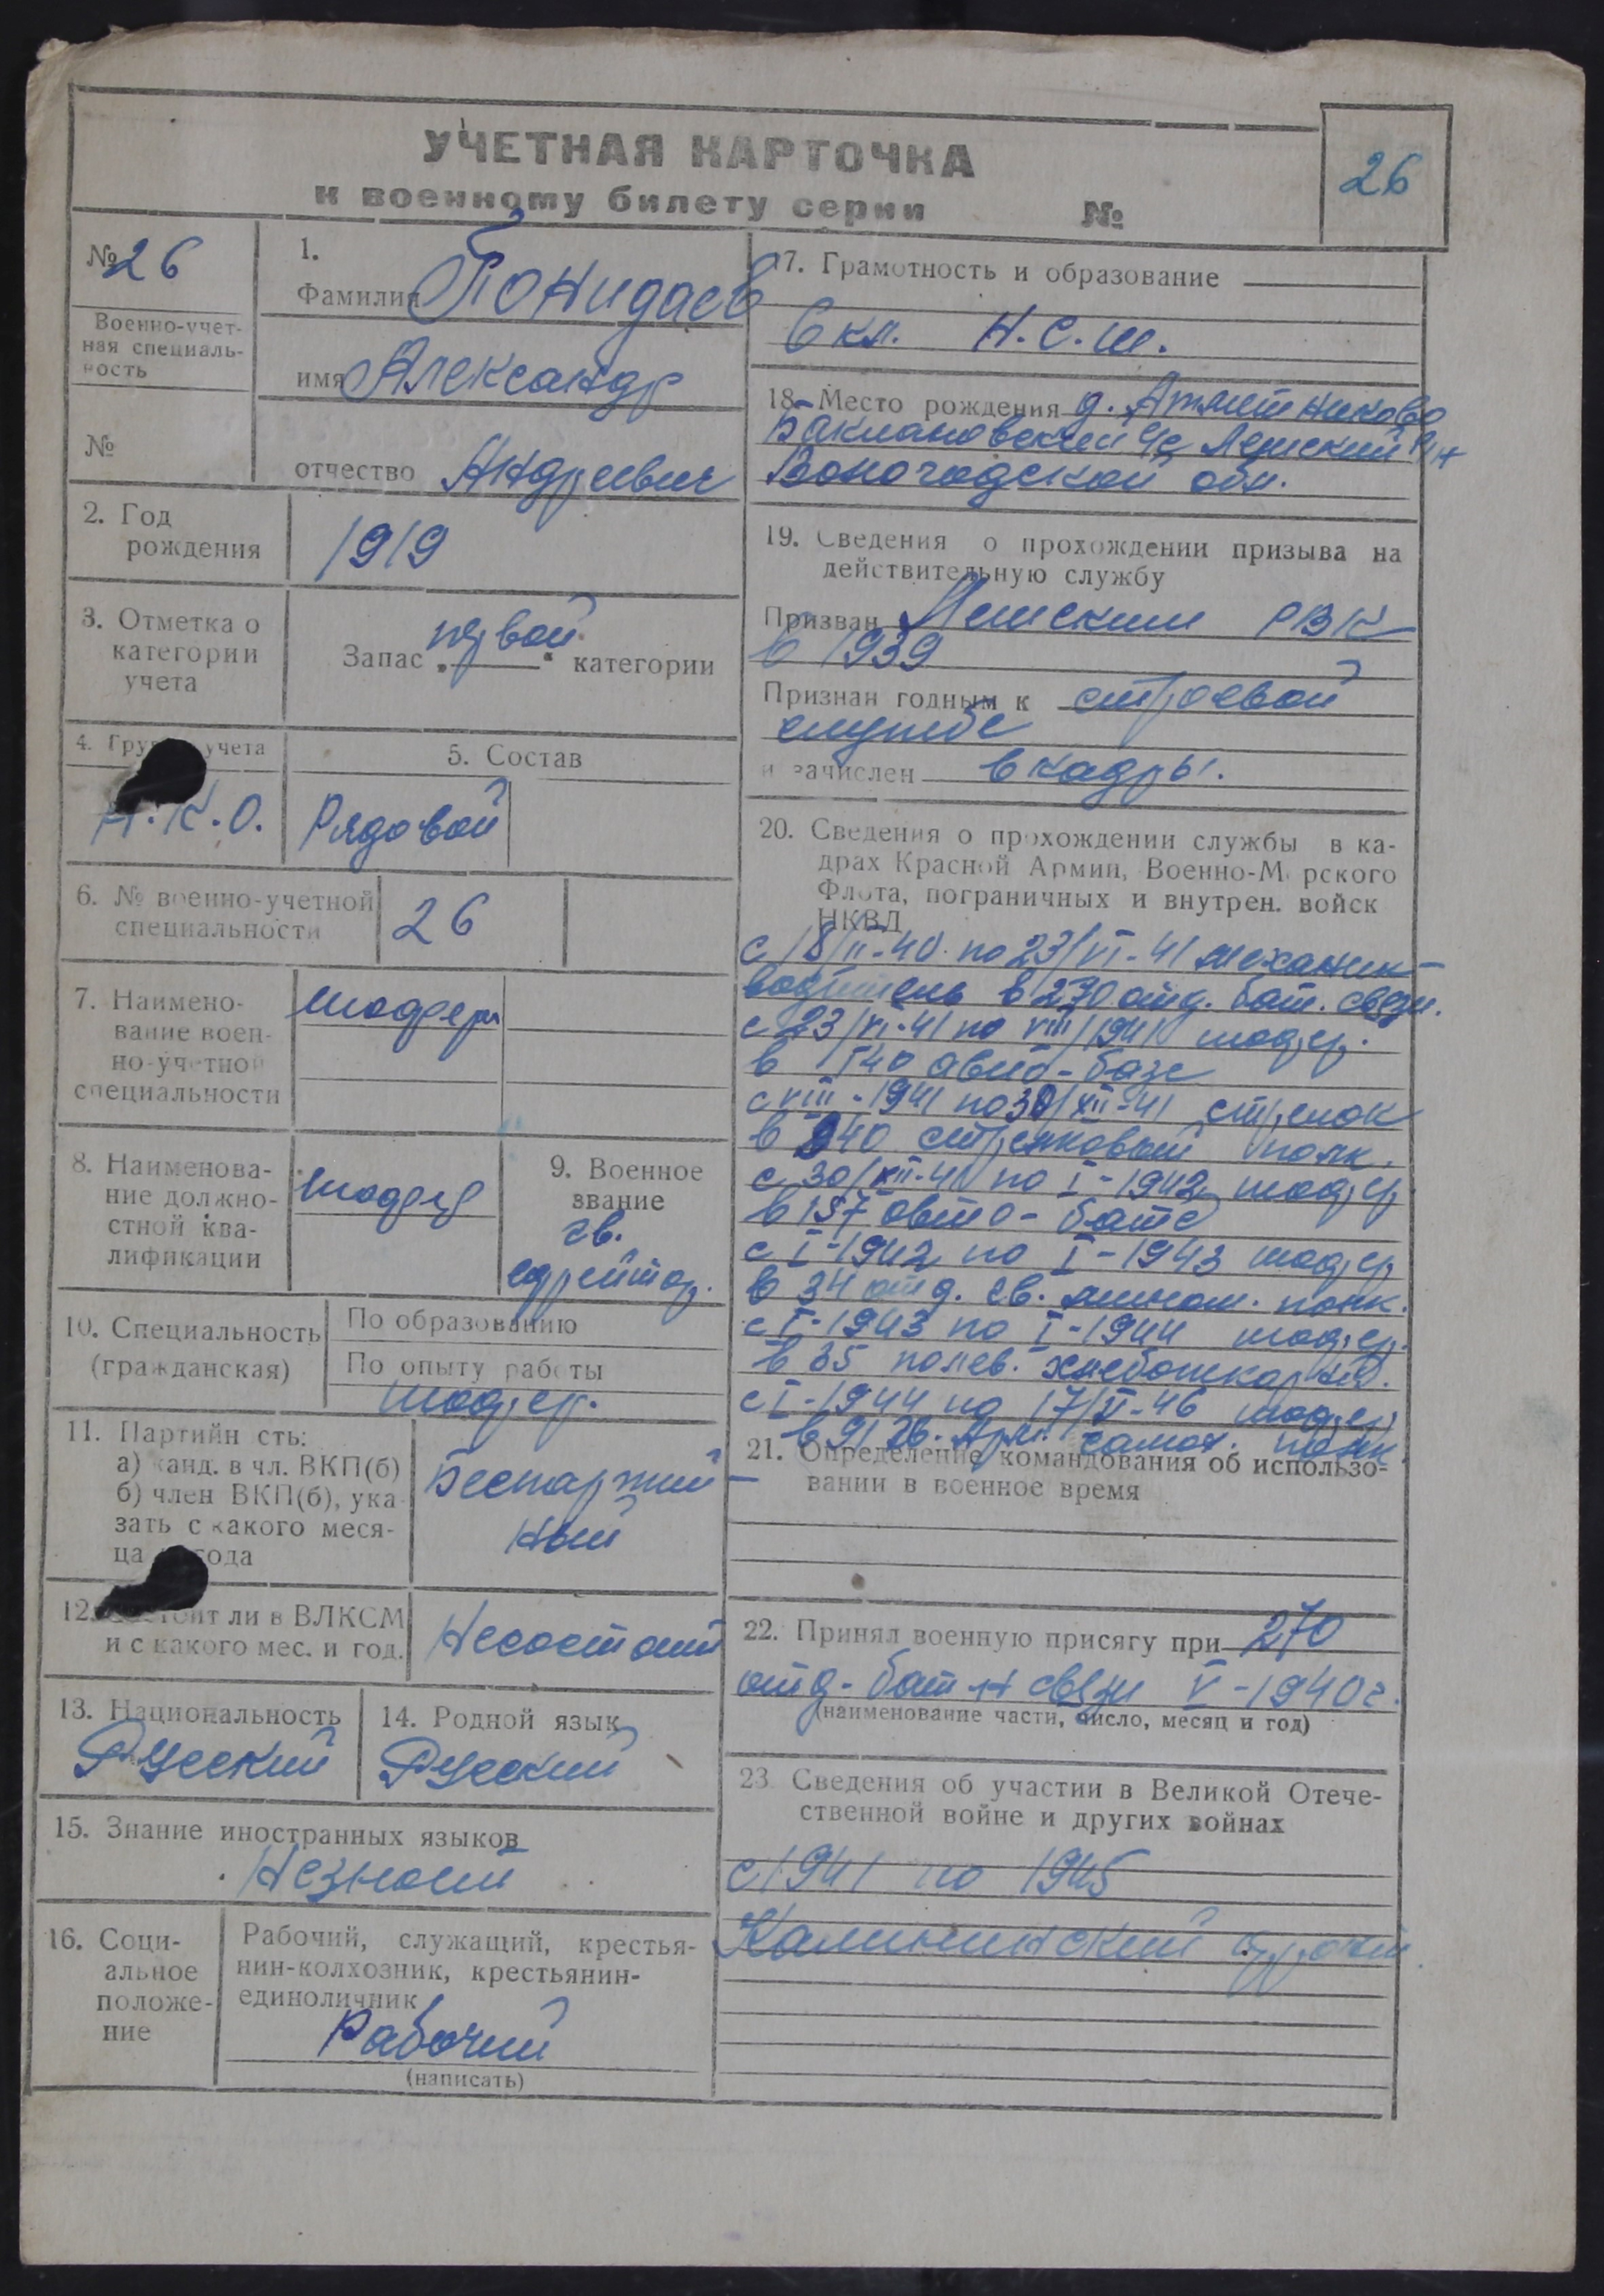 УЧЕТНАЯ КАРТОЧКА
к военному билету серии №
26
№ 26
Военно-учет-
ная специаль-
ность
№
1.
Фамилия Понидаев
имя Александр
отчество Андреевич
2. Год
рождения
1919
3. Отметка о
категории
учета
Запас „первой“ категории
4. Группа учета
Н.К.О.
5. Состав
Рядовой
6. № военно-учетной
специальности
26
7. Наимено-
вание воен-
но-учетной
специальности
шофера
8. Наименова-
ние должно-
стной ква-
лификации
шофер
9. Военное
звание
гв.
ефрейтор.
10. Специальность
(гражданская)
По образованию
По опыту работы
шофер.
11. Партийн сть:
а) канд. в чл. ВКП(б)
б) член ВКП(б), ука-
зать с какого меся-
ца года
Беспартий-
ный
12. Состоит ли в ВЛКСМ
и с какого мес. и год.
Несостоит
13. Национальность
Русский
14. Родной язык
Русский
15. Знание иностранных языков
Незнает
16. Соци-
альное
положе-
ние
Рабочий, служащий, крестья-
нин-колхозник, крестьянин-
единоличник
Рабочий
(написать)
17. Грамотность и образование
6 кл. Н.С.Ш.
18. Место рождения д.
Баклановский с/с Лешский р/н
Вологодской обл.
19. Сведения о прохождении призыва на
действительную службу
Призван Лешским РВК
в 1939
Признан годным к строевой
службе
и зачислен в кадры.
20. Сведения о прохождении службы в ка-
драх Красной Армии, Военно-М рского
Флота, пограничных и внутрен. войск
НКВД
с 18/II-40 по 23/VI-41 механик-
водитель в 270 отд. бат. связи.
с 23/VI-41 по VIII/1941 шофер.
в 140 авио-базе
с VIII-1941 по 30/XII-41 стрелок
в 940 стрелковый полк.
с 30/XII-41 по I-1942 шофер
в 157 авто-бате
с I-1942 по I-1943 шофер
в 34 отд. гв. мином. полк.
с I-1943 по I-1944 шофер.
в 35 полев. хлебопекарне.
с I-1944 по 17/VI-46 шофер
в 91 гв. Арм. самох. полк.
21. Определение командования об использо-
вании в военное время
22. Принял военную присягу при 270
отд. бат-н связи V-1940г.
(наименование части, число, месяц и год)
23. Сведения об участии в Великой Отече-
ственной войне и других войнах
с 1941 по 1945
Калининский фронт.